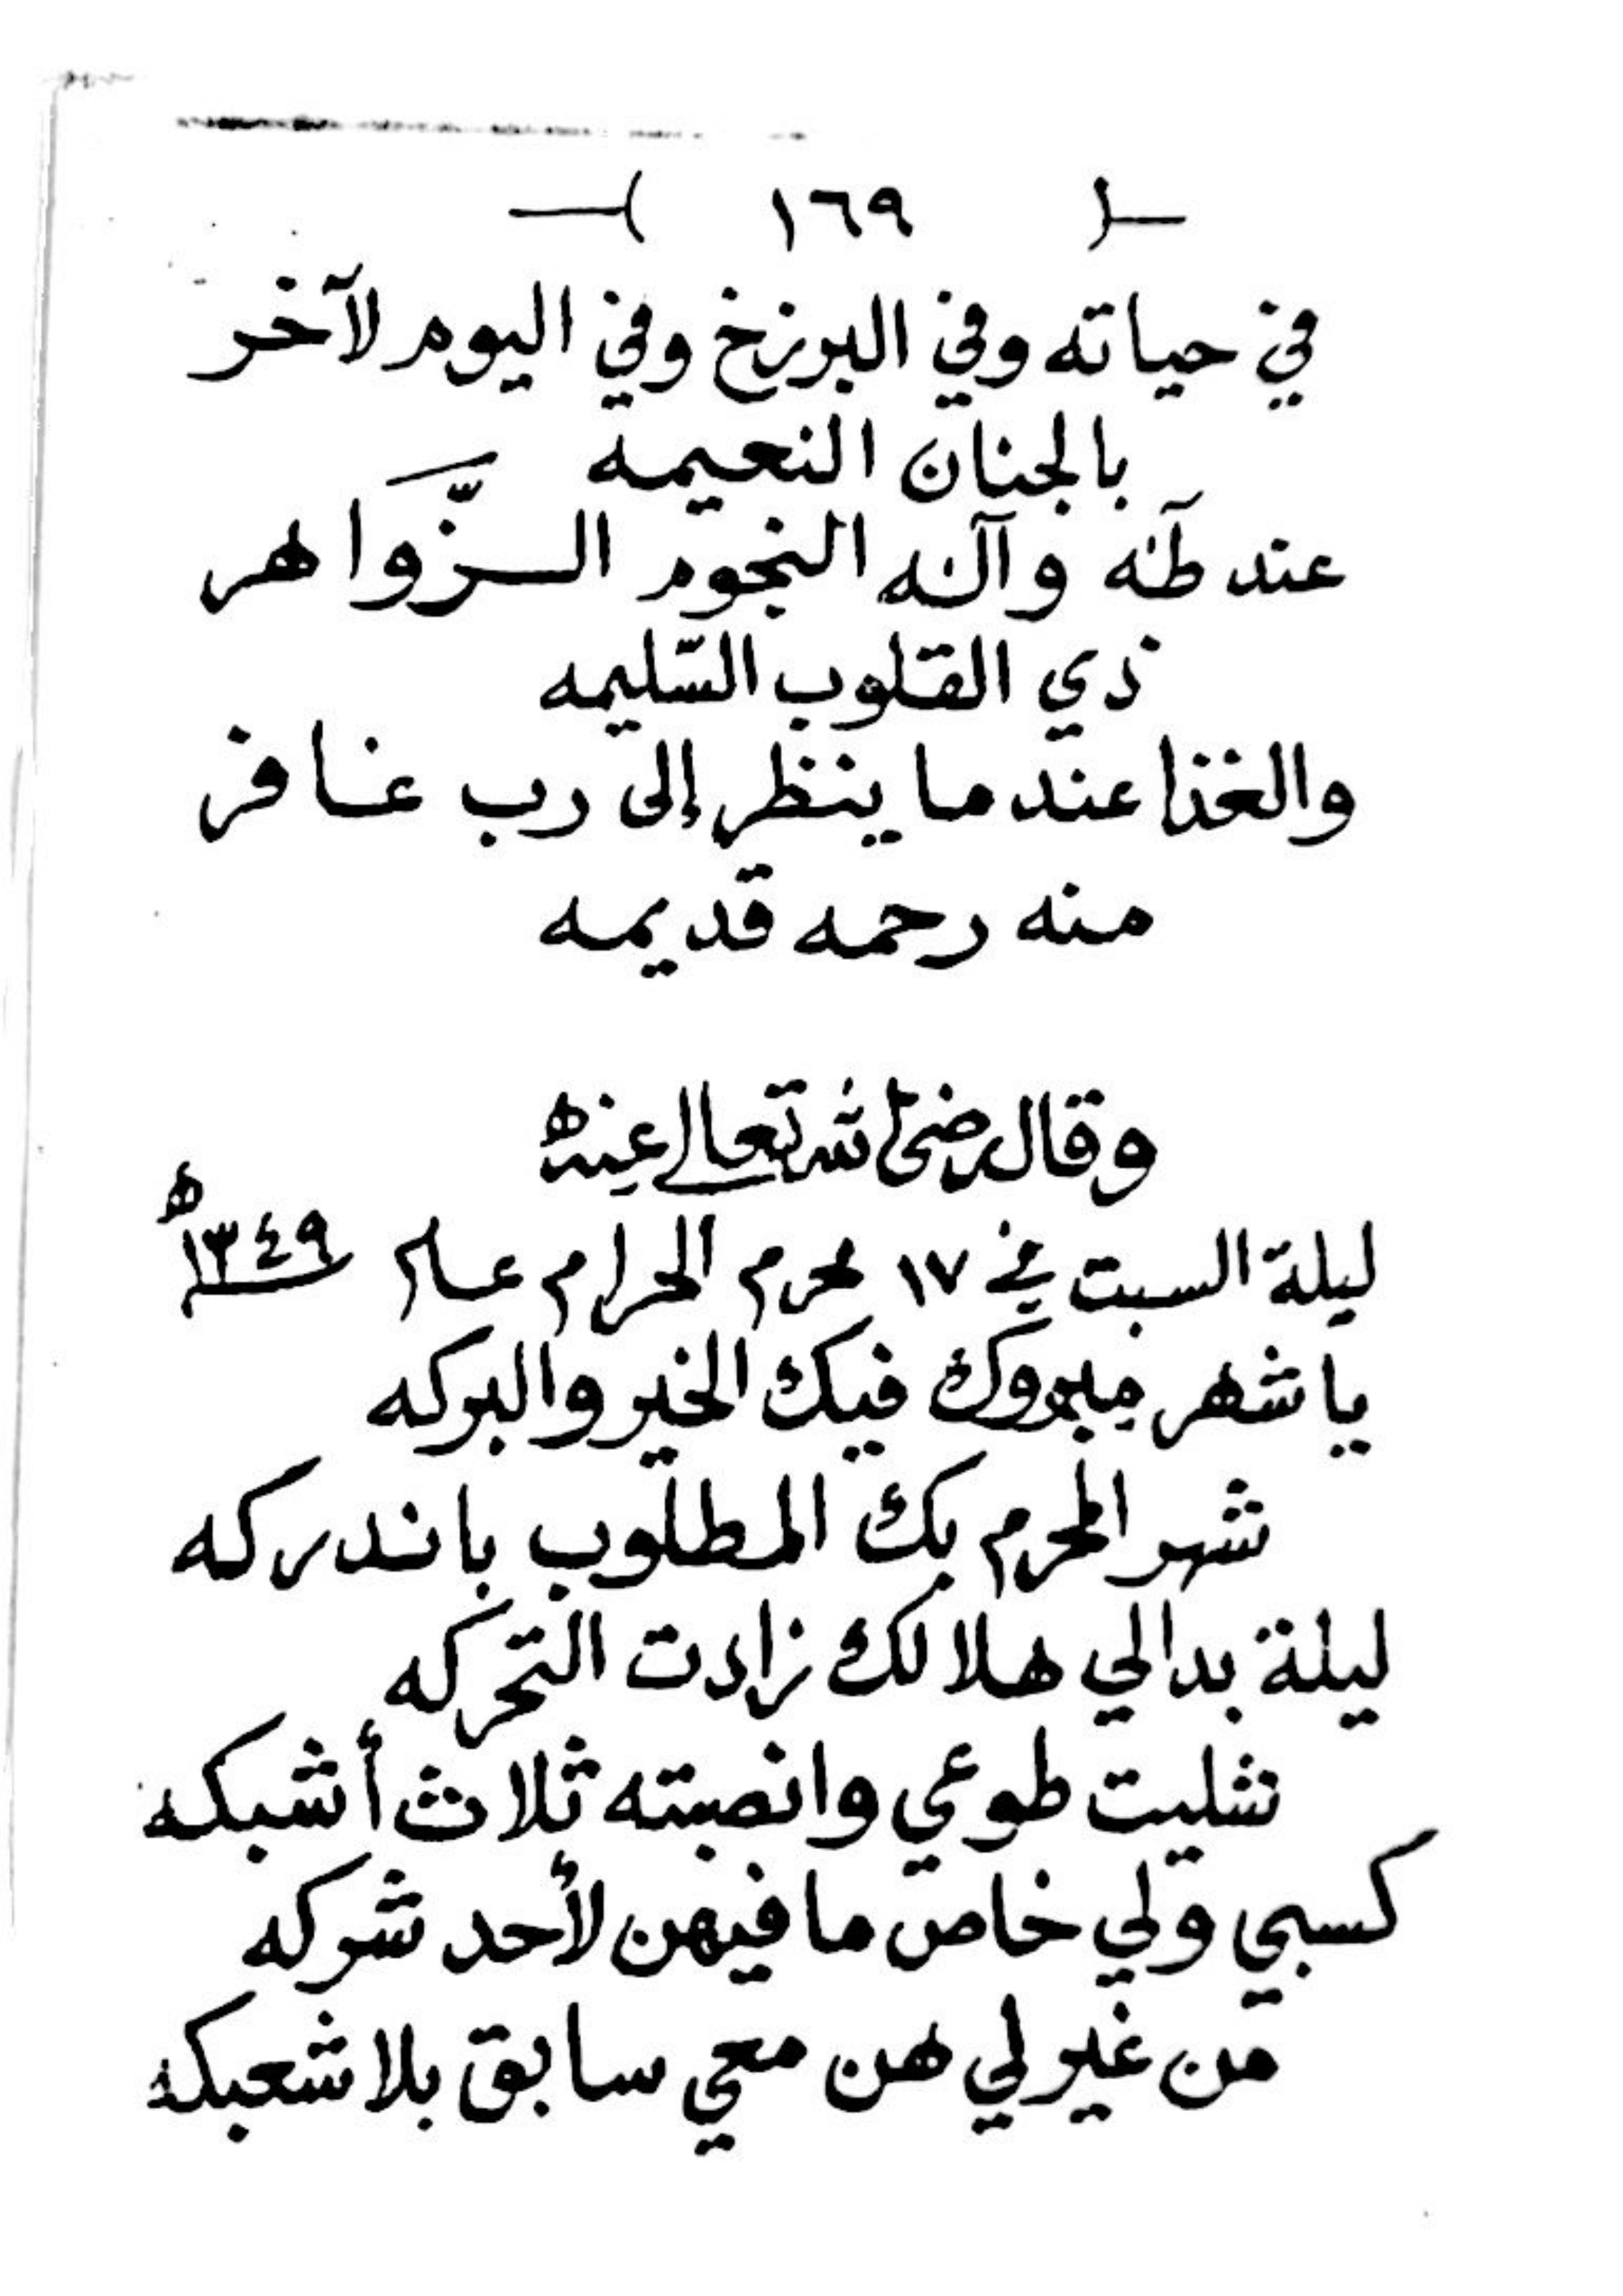 —( ١٦٩ )—
في حياته وفي البرزخ وفي اليوم لآخر
بالجنان النعيمه
عند طه وآله النجوم الزَّواهر
ذي القلوب السّليمه
والغذا عندما ينظر إلى رب غافر
منه رحمه قديمه
وقال رضي الله تعالى عنه
ليلة السبت في ١٧ محرم الحرام عام ١٣٤٩ ه
يا شهر مبروك فيك الخير والبركه
شهر المحرم بك المطلوب باندركه
ليلة بدالي هلالك زادت التحركه
شليت طوعي وانصبته ثلاث أشبكه
كسبي ولي خاص ما فيهن لأحد شركه
من غير لي هن معي سابق بلا شعبكه